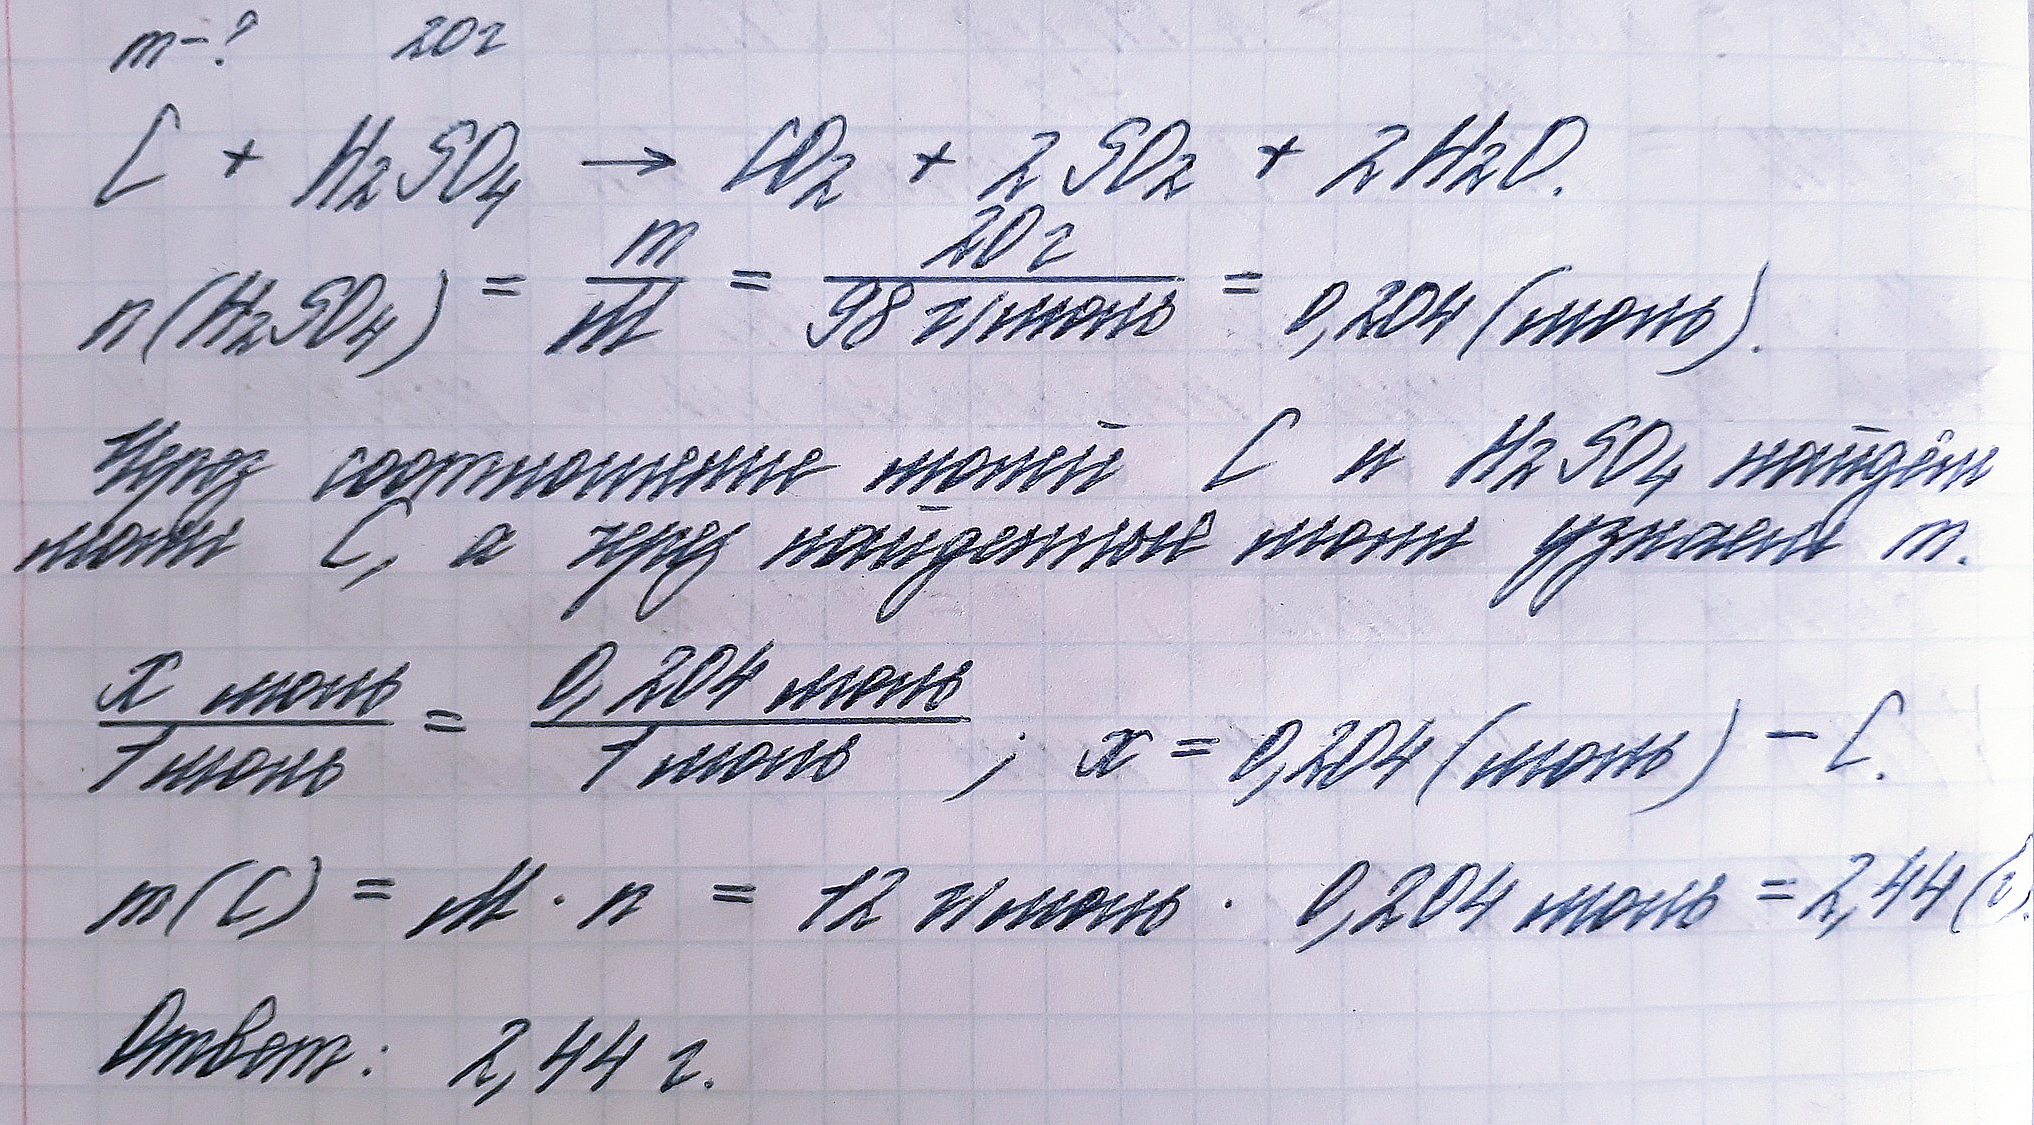 m-? 20г
C + H₂SO₄ → CO₂ + 2SO₂ + 2H₂O.
n(H₂SO₄) = m/M = 20г/98 г/моль = 0,204 (моль).
Через соотношение молей C и H₂SO₄ найдём
моли C, а через найденные моли узнаем m.
x моль/1 моль = 0,204 моль/1 моль ; x = 0,204 (моль) - C.
m(C) = M · n = 12 г/моль · 0,204 моль = 2,44 (г).
Ответ: 2,44 г.